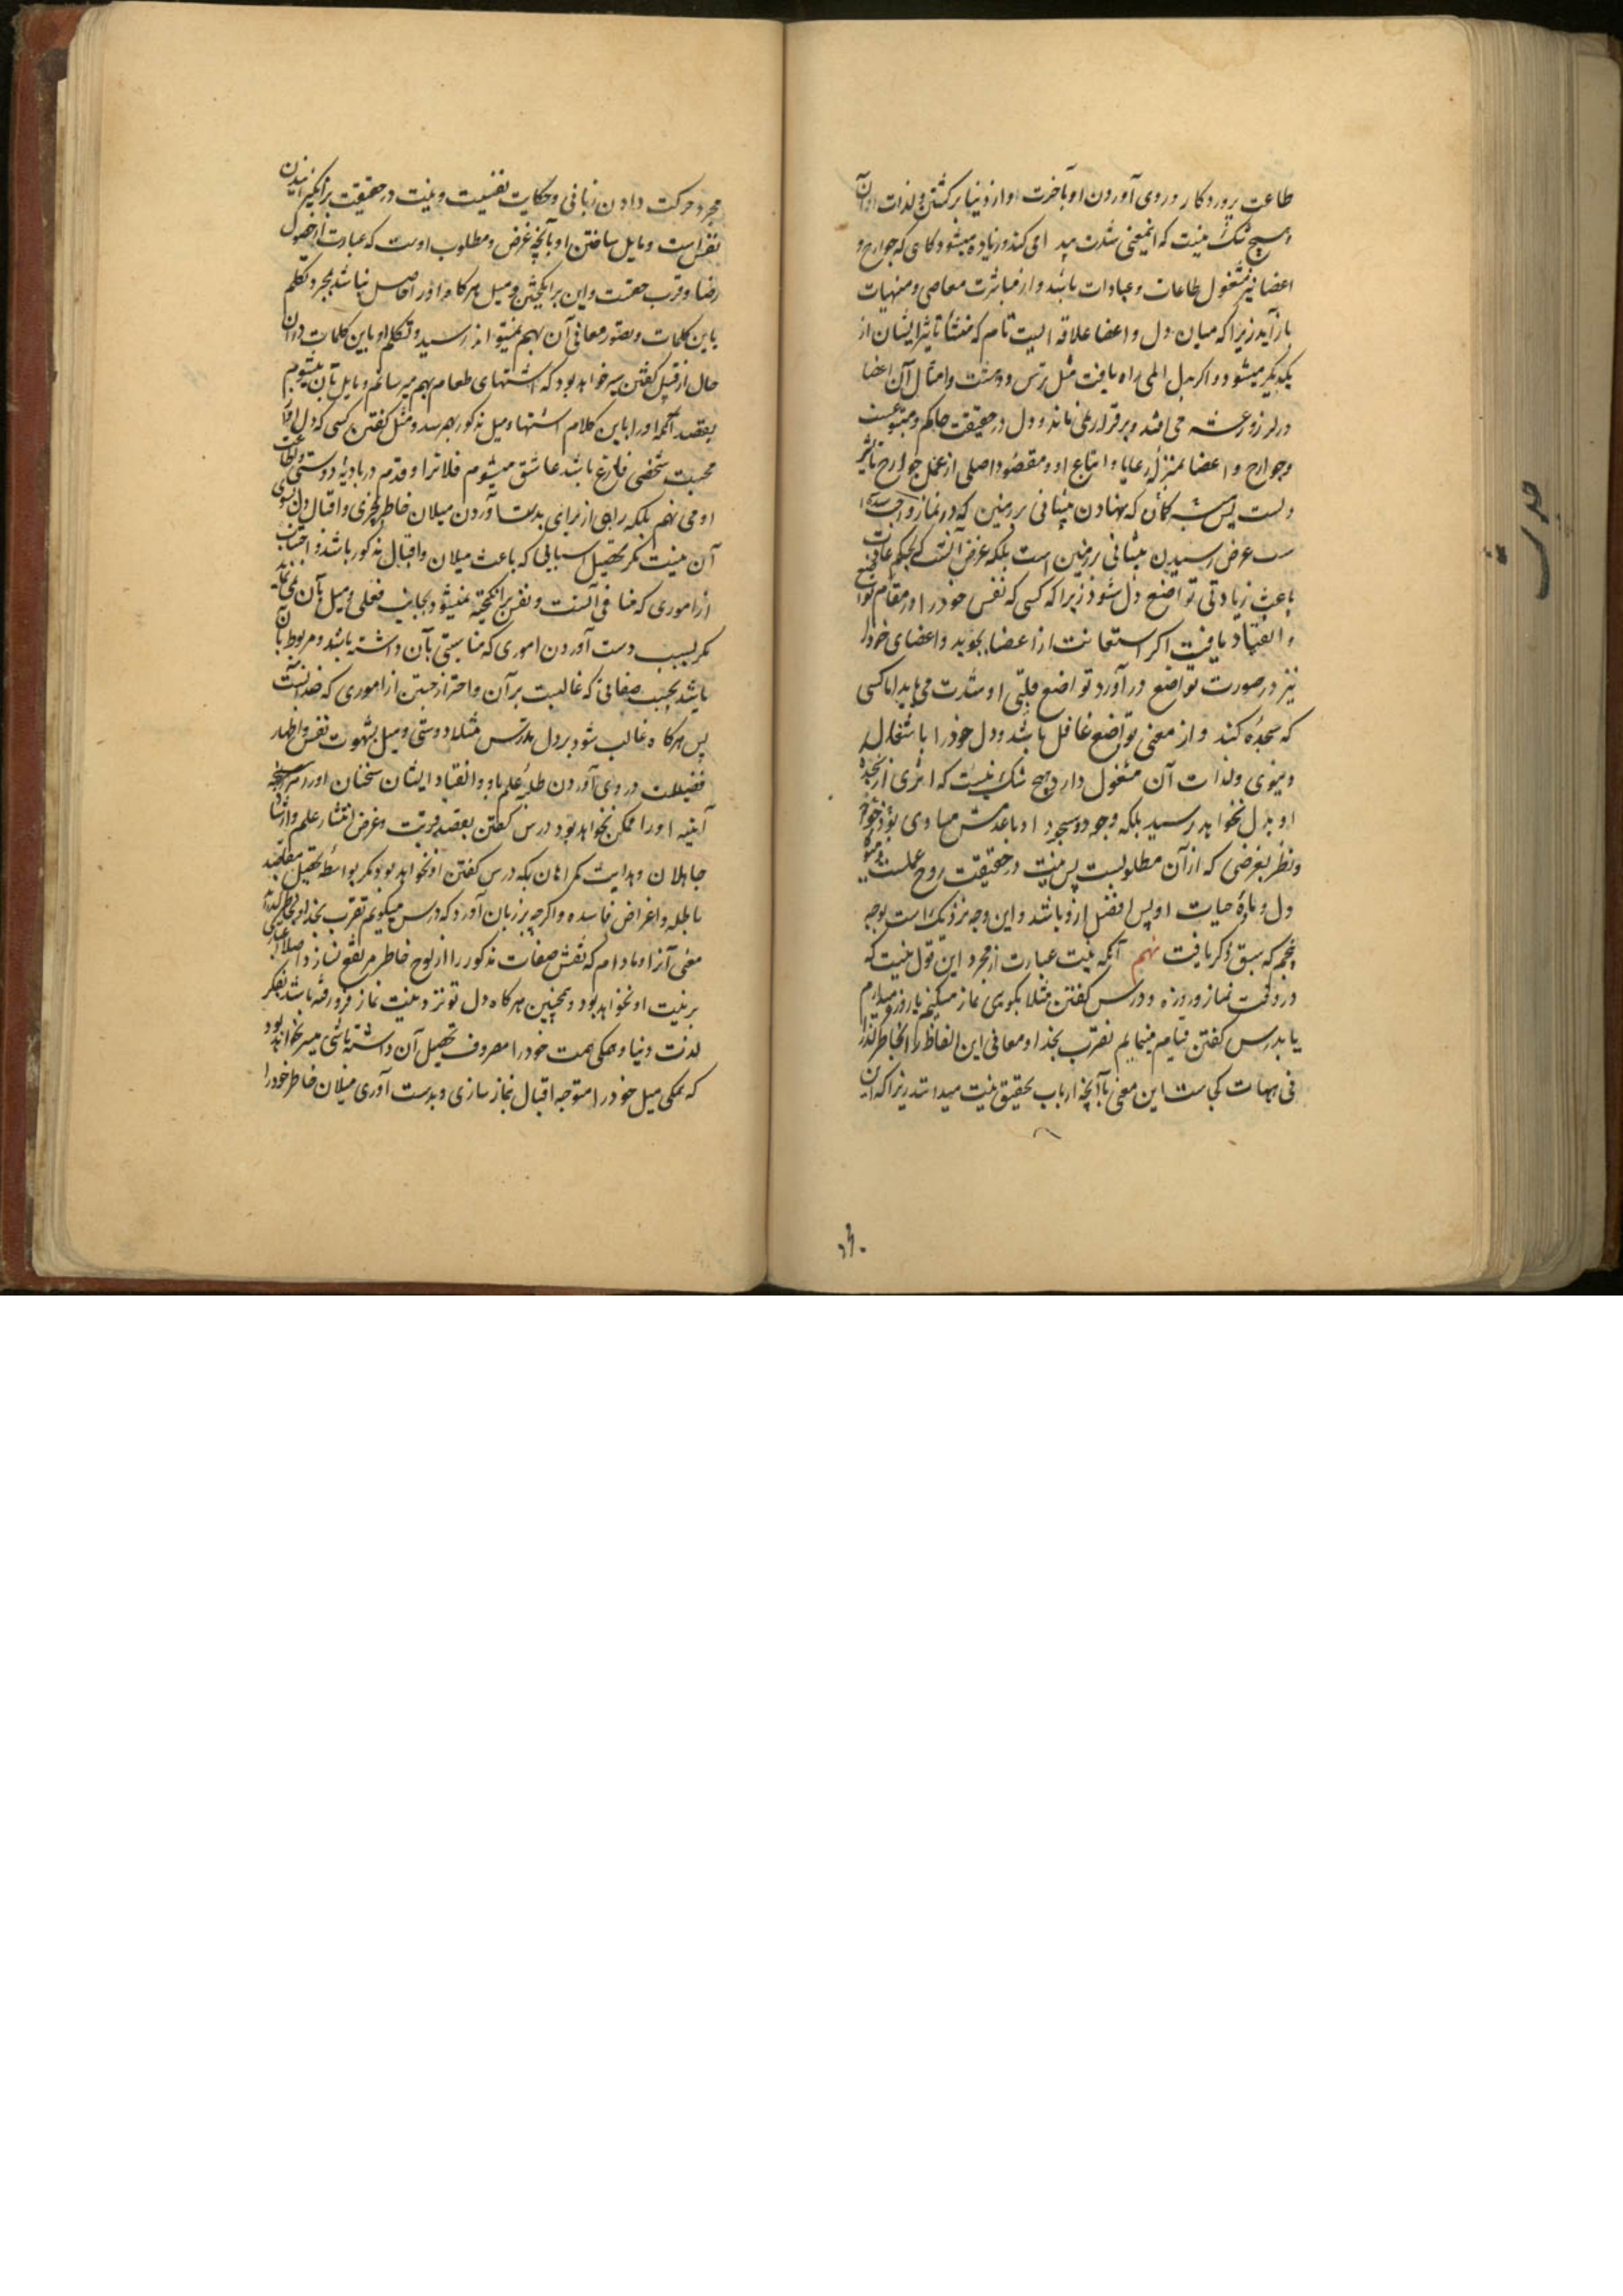 طاعت پروردکار و روی آوردن او بآخرت و از دنیا برکشتن و لذات آن
و هیچ شک نیست که اینمعنی شدت پیدا می کند و زیاده میشود کاهی که جوارح و
اعضا نیز مشغول طاعات و عبادات باشد و از مباشرت معاصی و منهیات
باز آید زیرا که میان دل و اعضا علاقه ایست تام که منشأ تاثیر ایشان از
یکدیکر میشود و اکر بدل المی راه یافت مثل ترس و دهشت و امثال آن اعضا
در لرز و رعشه می افتد و برقرار نمی ماند و دل در حقیقت حاکم و متبوعست
و جوارح و اعضا بمنزلهٔ رعایا و اتباع او و مقصود اصلی از عمل جوارح تاثیر
دلست پس کمان که نهادن پیشانی بر زمین که در نماز واجب
ست غرض رسیدن پیشانی بر زمین است بلکه غرض آنست که بحکم عادت
باعث زیادتی تواضع دل شود زیرا که کسی که نفس خود را در مقام تواضع
و انقیاد یافت اکر استعانت از اعضا بجوید و اعضای خود را
نیز در صورت تواضع در آورد تواضع قلبی او شدت می یابد اما کسی
که سجده کند و از معنی تواضع غافل باشد و دل خود را باشتغال
دنیوی و لذات آن مشغول دارد هیچ شک نیست که اثری از سجده
او بدل نخواهد رسید بلکه وجود سجود او با عدمش مساوی خواهد بود
و نظر بغرضی که از آن مطلوبست پس نیت در حقیقت روح عملست
دل و مایهٔ حیات او پس افضل ازو باشد و این وجه نزدیک است بوجه
پنجم که سبق ذکر یافت نهم آنکه نیت عبارت از مجرد این قول نیست که
در وقت نماز و روزه و درس کفتن مثلا بکوی نماز میکنم یا روزه میدارم
یا بدرس کفتن قیام مینمایم تقرب بخدا و معانی این الفاظ را بخاطر کذرا
نی هیهات کجاست این معنی با آنچه ارباب تحقیق نیت میدانند زیرا که این
حدیث
مجرد حرکت دادن زبانی و حکایت نفسیست و نیت در حقیقت برانکیزانیدن
نفس است و مایل ساختن او بآنچه غرض و مطلوب اوست که عبارت از حصول
رضا و قرب حقست و این برانکیختن و میل هرکاه او را حاصل نباشد بمجرد تکلم
باین کلمات و تصور معانی آن بهم نمیتواند رسید و تکلم او باین کلمات در آن
حال از قبیل کفتن سیر خواهد بود که اشتهای طعام بهم میرسانم و مایل بآن میشوم
بقصد آنکه او را باین کلام اشتها و میل مذکور بهم رسد و مثل کفتن کسی که دل او از
محبت شخصی فارغ باشد عاشق میشوم فلانرا و قدم در بادیهٔ دوستی و طاعت
او می نهم بلکه راهی از برای بدست آوردن میلان خاطر بچیزی و اقبال دل بسوی
آن نیست مکر تحصیل اسبابی که باعث میلان و اقبال مذکور باشد و اجتناب
از اموری که منافی آنست و نفس برانکیخته نمیشود بجانب فعلی و میل بآن نمی نماید
مکر بسبب دست آوردن اموری که مناسبتی بآن داشته باشد و مربوط بآن
باشد بحسب صفاتی که غالبست بر آن و احتراز جستن از اموری که ضد آنست
پس هرکاه غالب شود بر دل مدرس مثلا دوستی و میل بشهوت نفس و اظهار
فضیلت و روی آوردن طلبهٔ علم باو و انقیاد ایشان سخنان او را
او را ممکن نخواهد بود درس کفتن بقصد قربت و غرض انتشار علم و ارشاد
جاهلان و هدایت کمراهان بلکه درس کفتن او نخواهد بود مکر بواسطهٔ تحصیل مقاصد
باطله و اغراض فاسده و اکرچه بر زبان آورد که درس میکویم تقرب بخدا و بخاطر کذراند
معنی آنرا و مادام که نقش صفات مذکور را از لوح خاطر مرتفع نسازد اصلا
بر نیت او نخواهد بود و همچنین هرکاه دل تو نزد نیت نماز فرو رفته باشد بفکر
لذت دنیا و همکی همت خود را مصروف تحصیل آن داشته باشی میسر نخواهد بود
که همکی میل خود را متوجه اقبال نماز سازی و بدست آوری میلان خاطر خود را